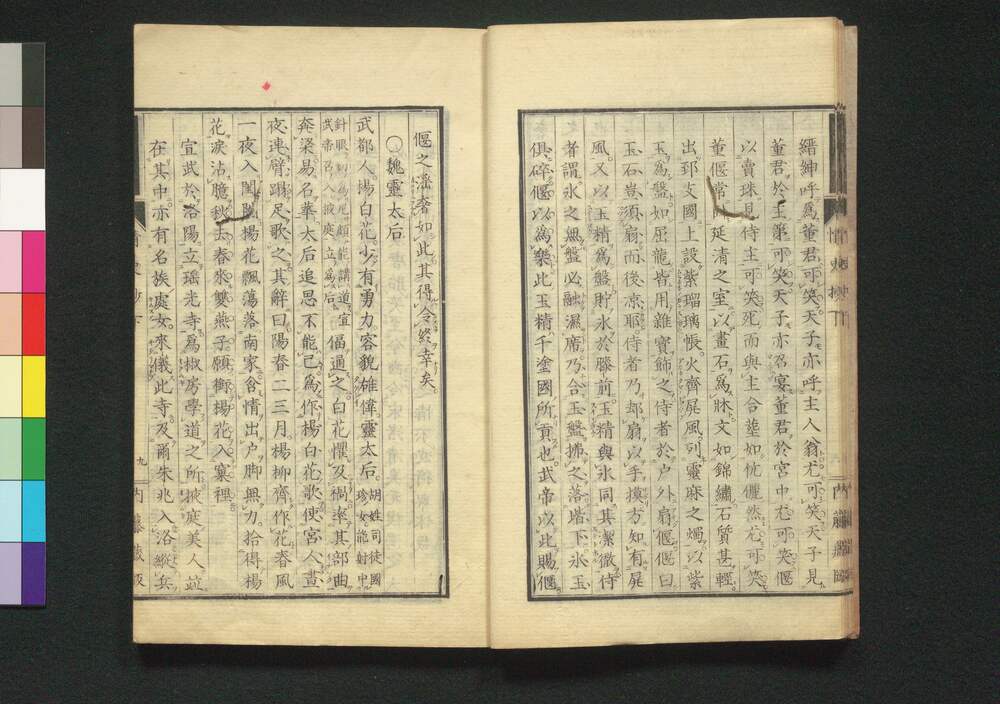 縉紳呼爲董君可笑天子亦呼主人翁尤可笑天子見
董君於主第可笑天子亦召宴董君於宮中尤可笑偃
以賣珠見侍主可笑死而與主合塟如伉儷然尤可笑
董偃常臥延清之室以畫石爲牀文如錦繡石質甚輕
出郅支國上設紫瑠璃帳火齊屛風列靈麻之燭以紫
玉爲盤如屈龍皆用雜寶飾之侍者於戶外扇偃偃曰
玉石豈須扇而後凉耶侍者乃却扇以手摸方知有屛
風又以玉精爲盤貯氷於膝前玉精與氷同其潔澈侍
者謂氷之無盤必融濕席乃合玉盤拂之落堦下氷玉
俱碎偃以爲樂此玉精千塗國所貢也武帝以此賜偃
偃之滛奢如此其得令終幸矣
○魏靈太后
武都人楊白花少有勇力容貌雄偉靈太后胡姓司徒國珍女能射中
針眼初爲尼頗能講道宣武帝召入掖庭立爲后逼通之白花懼及禍率其部曲
奔梁易名華太后追思不能已爲作楊白花歌使宮人晝
夜連臂蹋足歌之其辭曰陽春二三月楊柳齊作花春風
一夜入閨闥楊花飄蕩落南家含情出戶脚無力拾得楊
花淚沾臆秋去春來雙燕子願銜楊花入窠裡
宣武於洛陽立瑤光寺爲椒房學道之所掖庭美人並
在其中亦有名族處女來儀此寺及爾朱兆入洛縱兵
九
内藤藏版